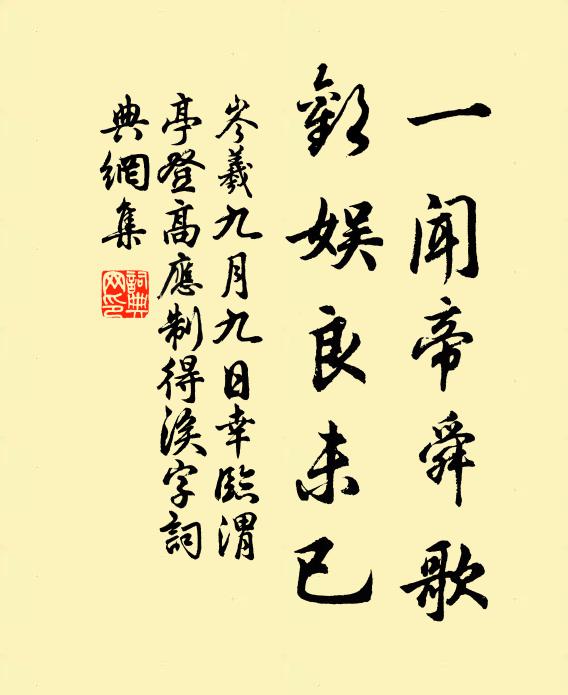 一聞帝舜歌
歡娛良未已
岑羲九月九日幸臨渭
亭登高應制得涘字詞
典網集
詞典網印